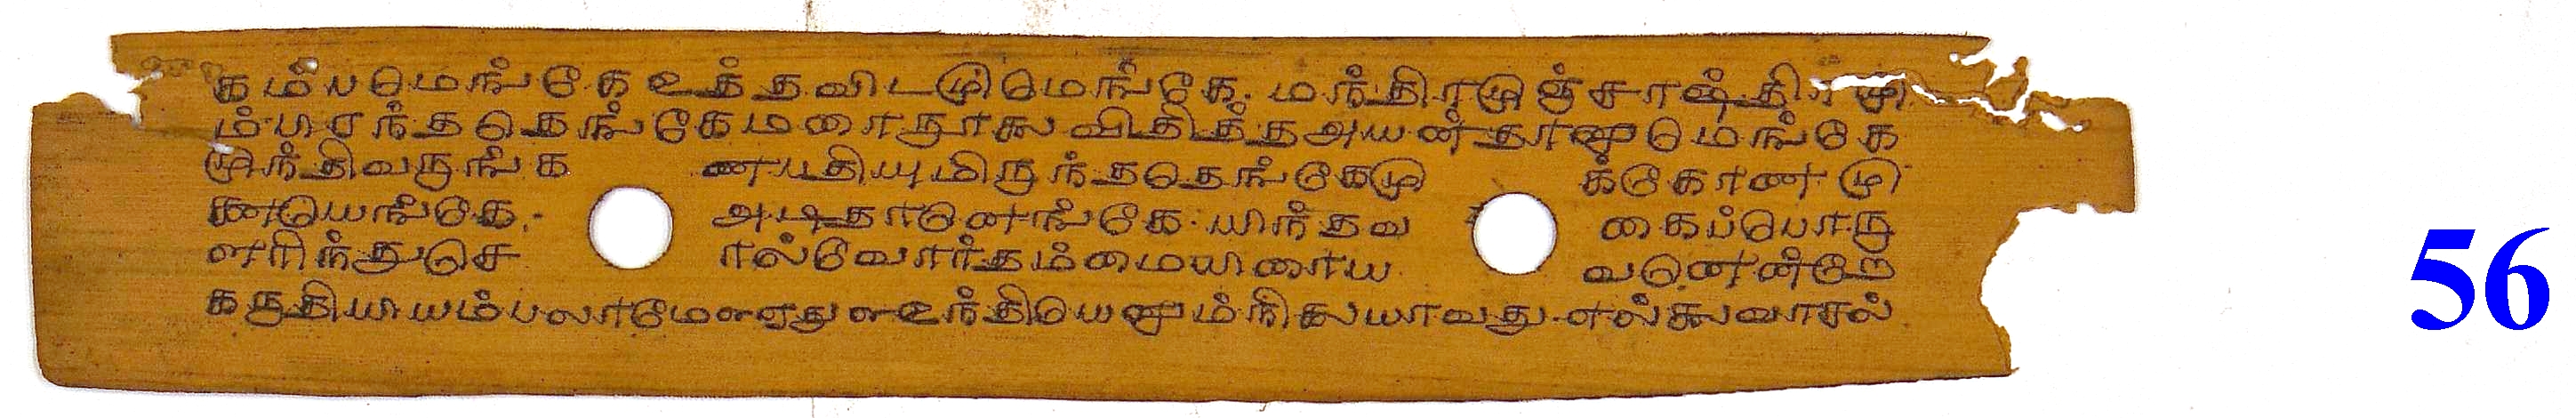 கம்பமெங்கே உத்தவிடமுமெங்கே. மந்திரமுஞ்சாஷ்திரமு
ம் பரந்ததெங்கே மறைநூலை விதித்த அயன்தானுமெங்கே
முந்திவருங்க ணபதியுமிருந்ததெங்கேமு க்கோணமு
னையெங்கே. அடிதானெங்கே யிந்தவ கைப்பொரு
ளறிந்துசெ ால்வோர்தம்மை வனென்றே
கருதியியம்பலாமே உந்தியெனும்நிலையாவது எல்லைவாசல்
56